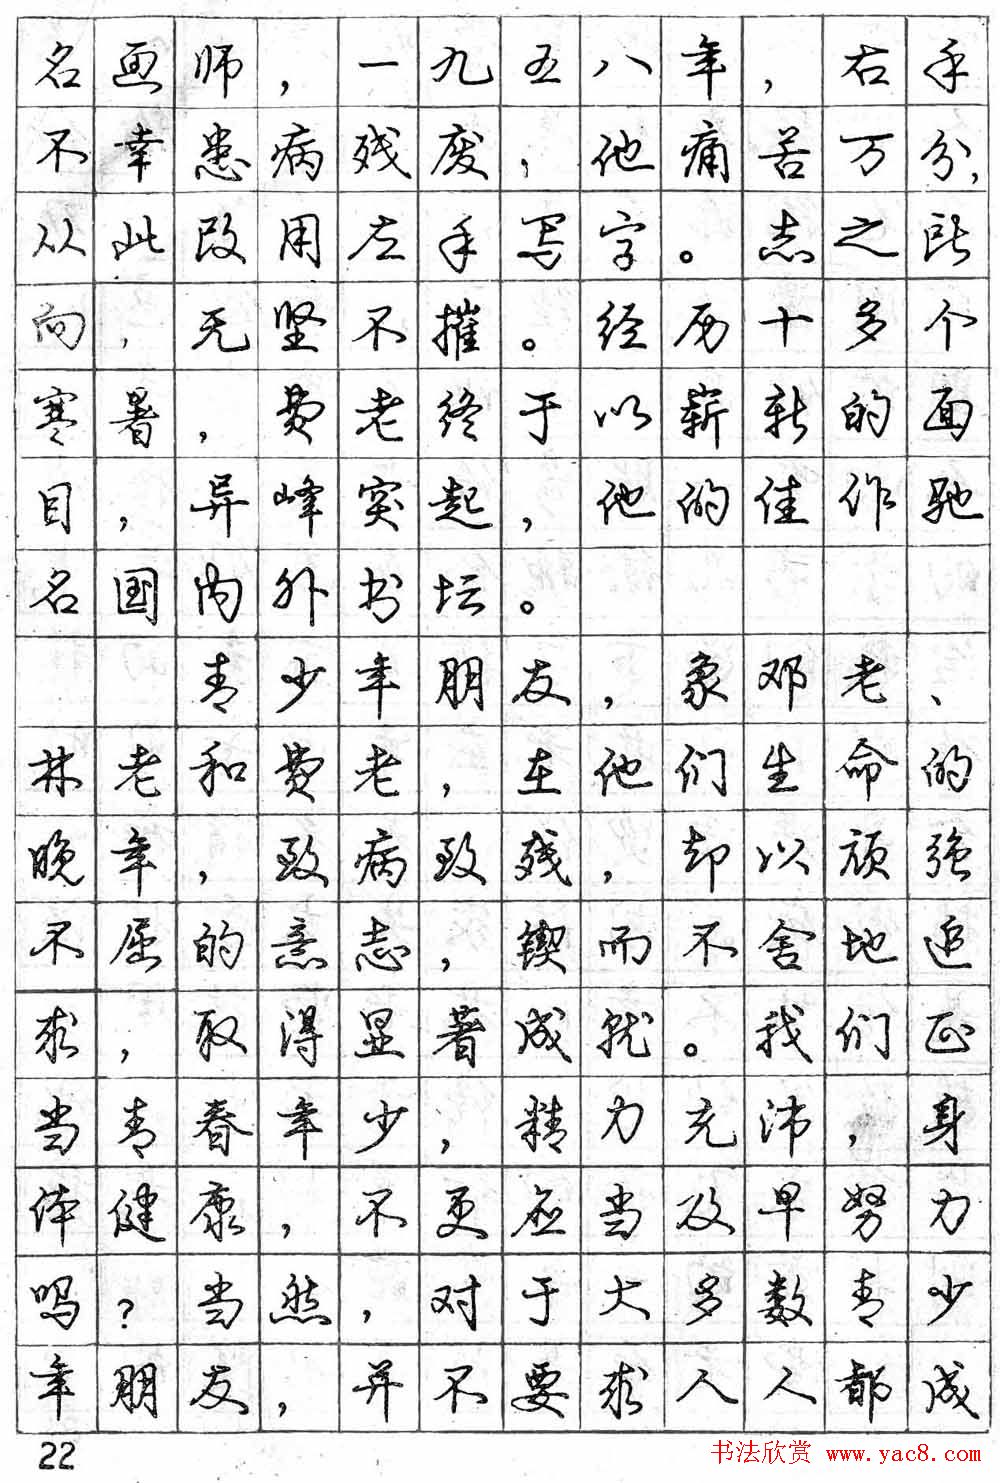 名画师，一九五八年，右手
不幸患病残废，他痛苦万分，
从此改用左手写字。志之所
向，无坚不摧。经历十多个
寒暑，费老终于以崭新的面
目，异峰突起，他的佳作驰
名国内外书坛。
青少年朋友，象邓老、
林老和费老，在他们生命的
晚年，致病致残，却以顽强
不屈的意志，锲而不舍地追
求，取得显著成就。我们正
当青春年少，精力充沛，身
体健康，不更应当及早努力
吗？当然，对于大多数青少
年朋友，并不要求人人都成
22
书法欣赏 www.yac8.com